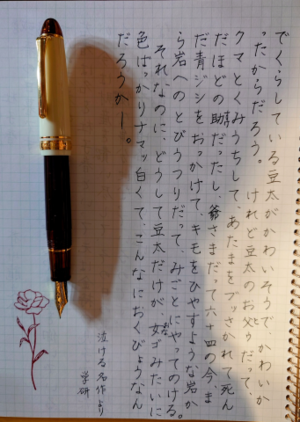 でくらしている豆太がかわいそうで、かわいか
ったからだろう。
けれど豆太のお父だって、
クマとくみうちして、あたまをブッさかれて死ん
だほどの助だったし、爺さまだって六十四の今、ま
だ青ジシをおっかけて、キモをひやすような岩か
ら岩へのとびうつりだって、みごとにやってのける。
それなのに、どうして豆太だけが、女ゴみたいに
色ばっかりナマッ白くて、こんなにおくびょうなん
だろうかー。
泣ける名作より
学研